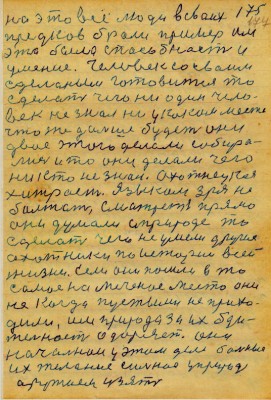 на это всё люди в своих 175
предков брали пример им
это была способность и
умение. Человек со своим
сделаным готовится то
сделать чего ни один чело-
век не знал ни у каком месте
что же дальше будет они
двое этого делали собира-
лись и то они делали чего
никто не знал. Охотнеуся
хитраст. Языком зря не
болтают, сматрят прямо
они думали а природе то
сделать чего не умели другие
охотники по истории всей
жизни. Если они пошли в то
самое намеченое место они
не когда пустыми не прихо-
дили, им природа за их бди-
тельност одаряет. они
начальном у этом деле больше
их желание сильное у природ
оружием взять